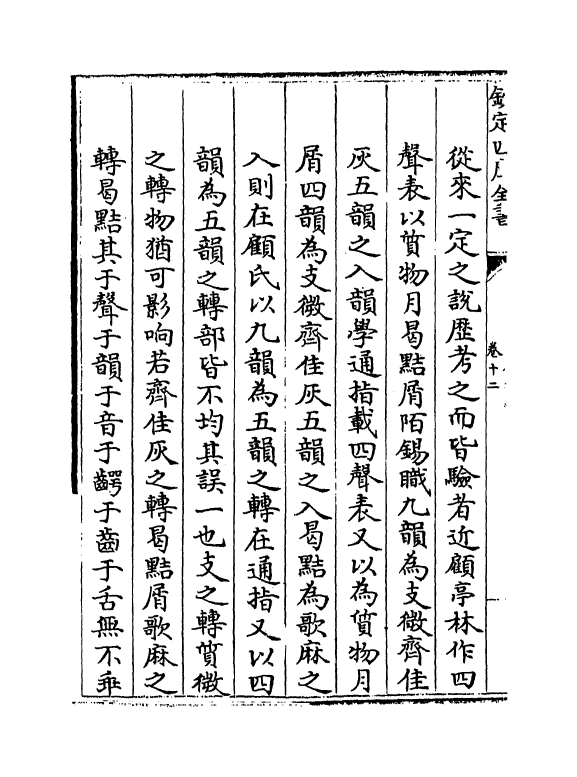 欽定四庫全書
卷十二
從來一定之說歷考之而皆驗者近顧亭林作四
聲表以質物月曷黠屑陌錫職九韻為支微齊佳
灰五韻之入韻學通指載四聲表又以為質物月
屑四韻為支微齊佳灰五韻之入曷黠為歌麻之
入則在顧氏以九韻為五韻之轉在通指又以四
韻為五韻之轉部皆不均其誤一也支之轉質微
之轉物猶可影响若齊佳灰之轉曷黠屑歌麻之
轉曷黠其于聲于韻于音于齶于齒于舌無不乖